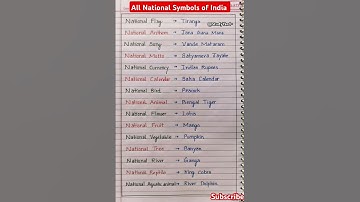 All National Symbols of India
National Flag → Tiranga
National Anthem → Jana Gana Mana
National Song → Vande Mataram
National Motto → Satyameva Jayate
National Currency → Indian Rupees
National Calendar → Saka Calendar
National Bird → Peacock
National Animal → Bengal Tiger
National Flower → Lotus
National Fruit → Mango
National Vegetable → Pumpkin
National Tree → Banyan
National River → Ganga
National Reptile → King Cobra
National Aquatic animal → River Dolphin
Subscribe